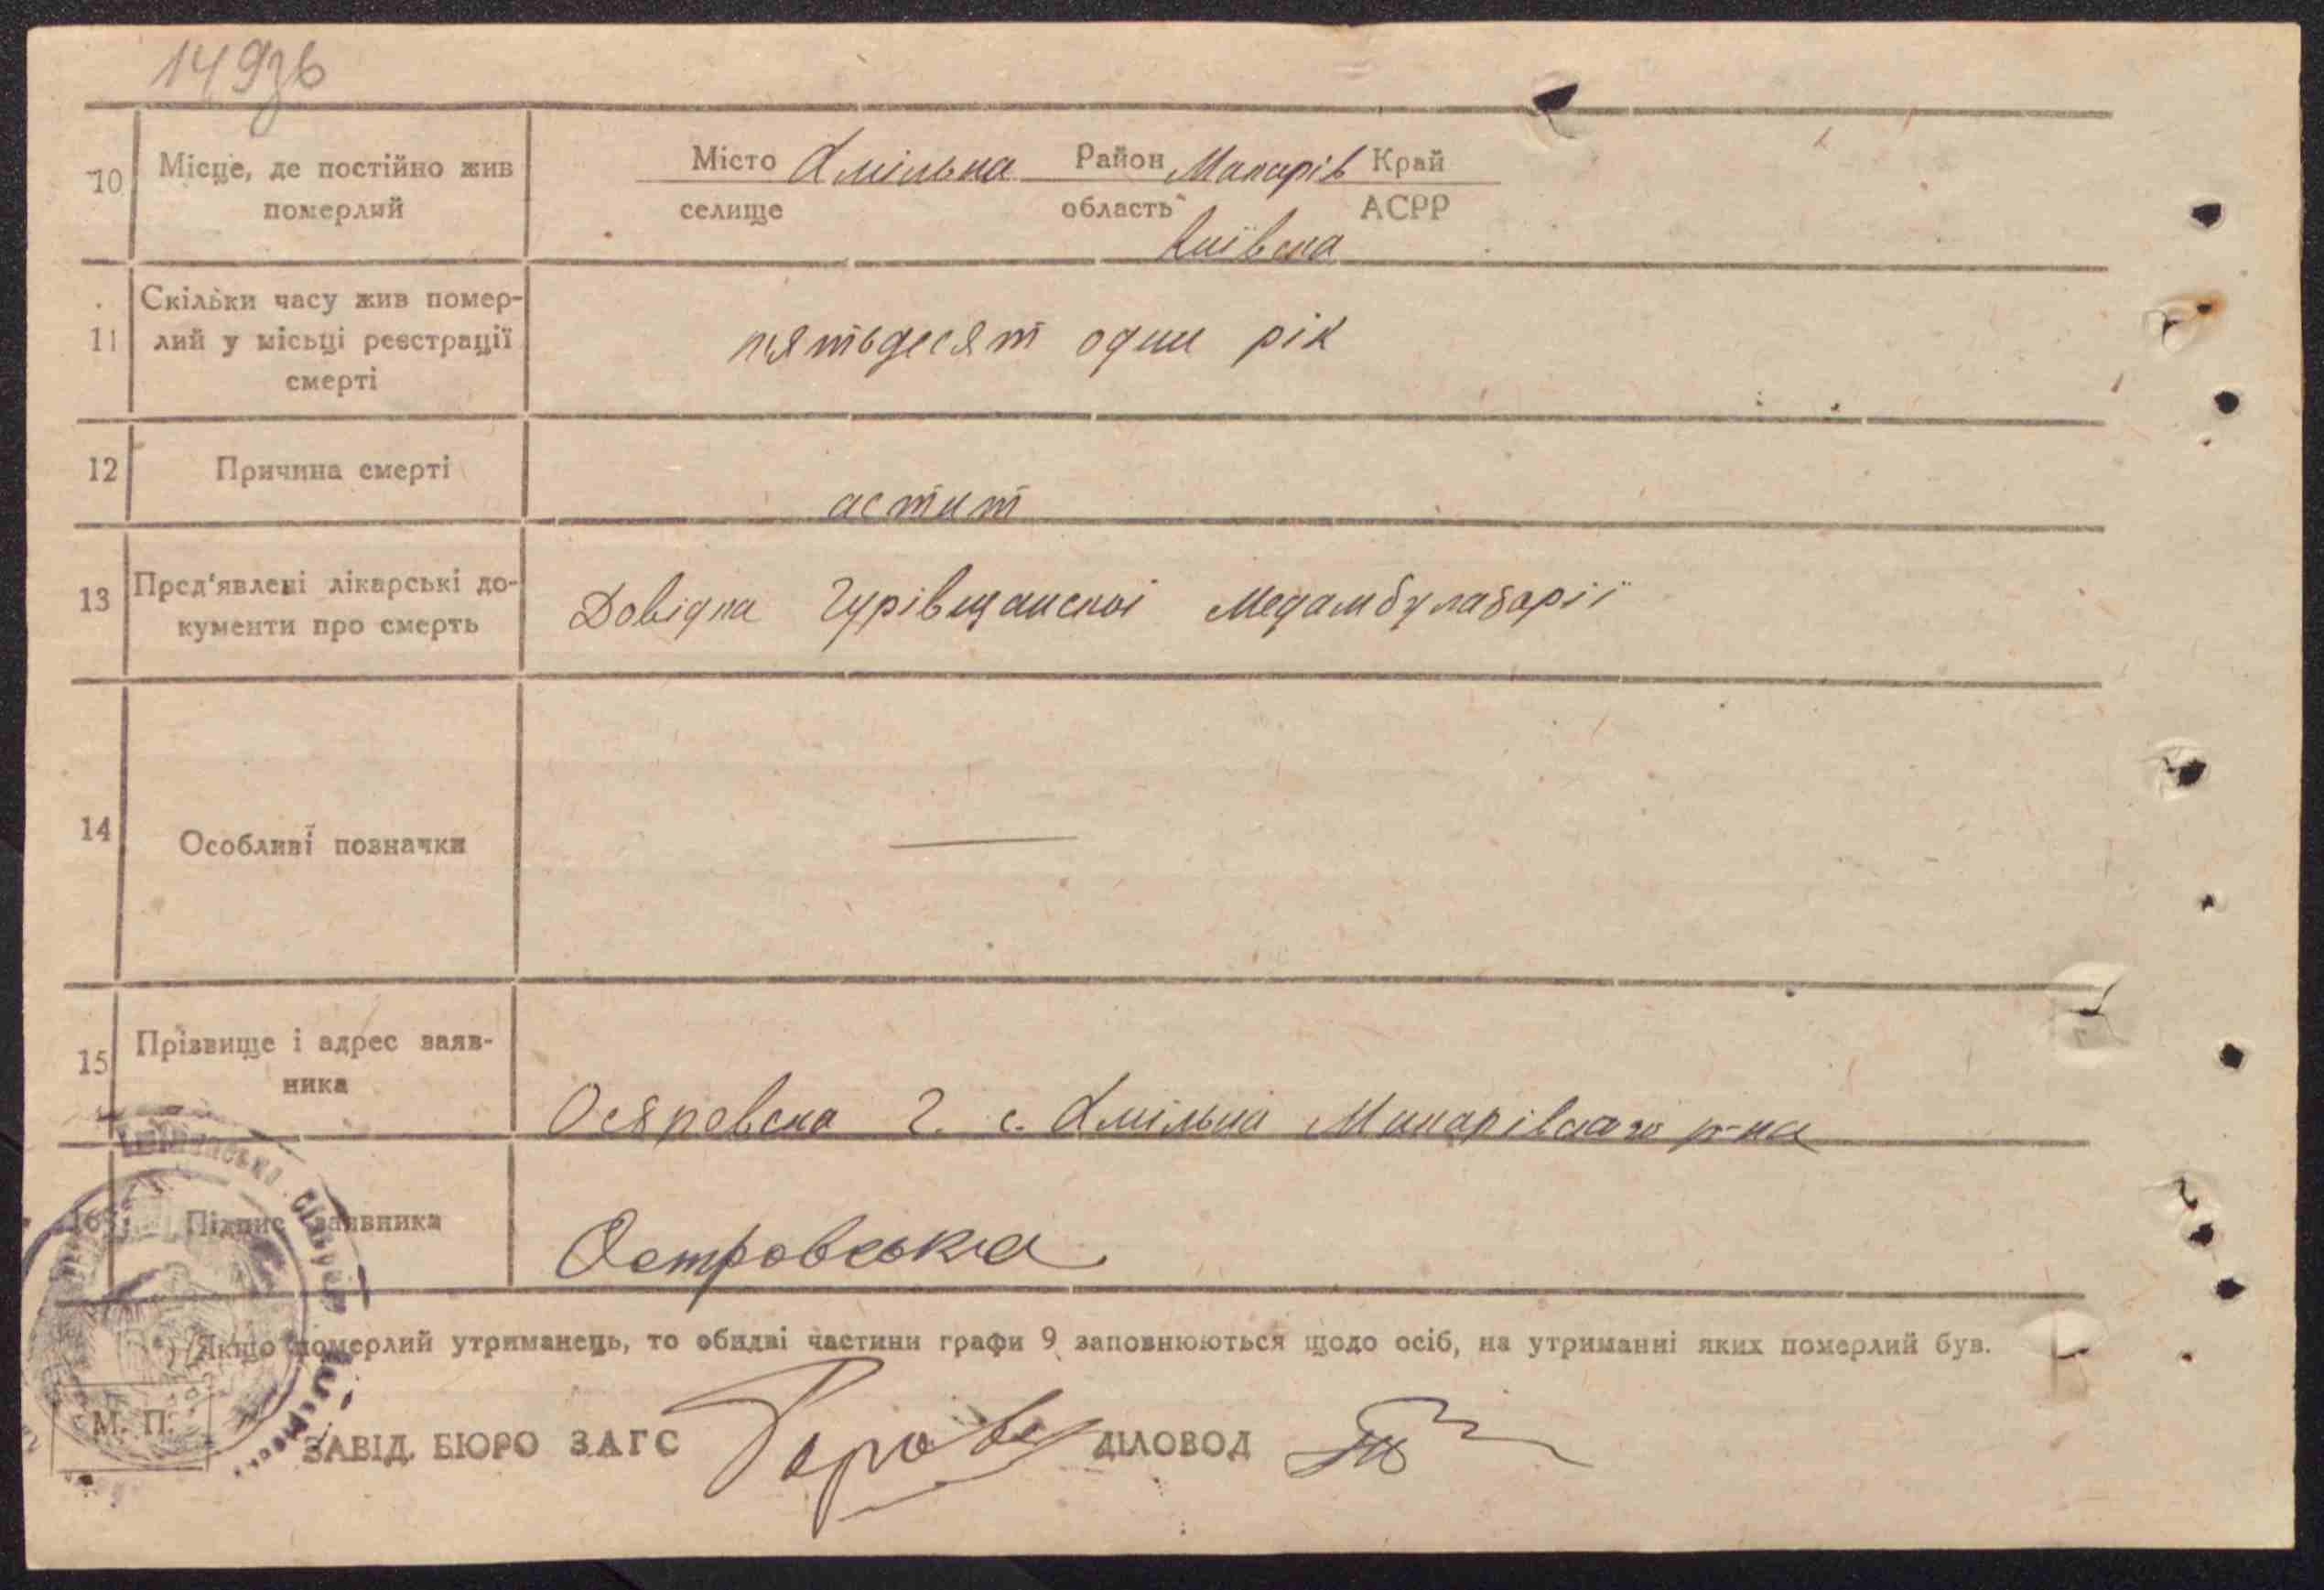 149зв
10 Місце, де постійно жив померлий
Місто Хмільна Район Макарів Край
селище область АСРР
Київска
11 Скільки часу жив помер-
лий у місьці реєстрації
смерті
пятьдесят один рік
12 Причина смерті
астит
13 Пред'явлені лікарські до-
кументи про смерть
Довідка Гурівщанскої Медамбулаторії
14 Особливі позначки —
15 Прізвище і адрес заяв-
ника
г. с. Хмільна Макарівского р-на
16 Підпис заявника
Островська
Якщо померлий утриманець, то обидві частини графи 9 заповнюються щодо осіб, на утриманні яких померлий був.
М. П.
ЗАВІД. БЮРО ЗАГС ДІЛОВОД